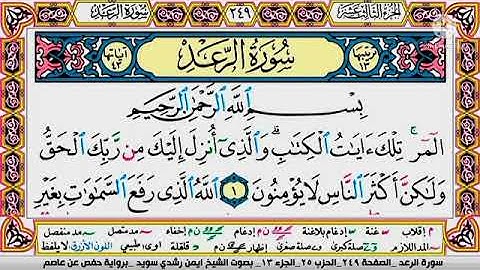 الجزء الثالث عشر ٢٤٩ سورة الرعد
ترتيبها ١٣ سُورَةُ الرَّعْدِ آياتها ٤٣
بِسْمِ ٱللَّهِ ٱلرَّحْمَٰنِ ٱلرَّحِيمِ
الٓمٓرۚ تِلْكَ ءَايَٰتُ ٱلْكِتَٰبِۗ وَٱلَّذِىٓ أُنزِلَ إِلَيْكَ مِن رَّبِّكَ ٱلْحَقُّ
وَلَٰكِنَّ أَكْثَرَ ٱلنَّاسِ لَا يُؤْمِنُونَ ١ ٱللَّهُ ٱلَّذِى رَفَعَ ٱلسَّمَٰوَٰتِ بِغَيْرِ
م إقلاب غنة إدغام بلاغنة ن م إدغام ن م إخفاء مد متصل مد منفصل
مد اللازم صلة كبرى صلة صغرى إظهار ن م قلقلة اوى: طبيعي اللون الأزرق لا يلفظ
سورة الرعد _ الصفحة ٢٤٩_ الحزب ٢٥_الجزء ١٣ _ بصوت الشيخ ايمن رشدي سويد _برواية حفص عن عاصم